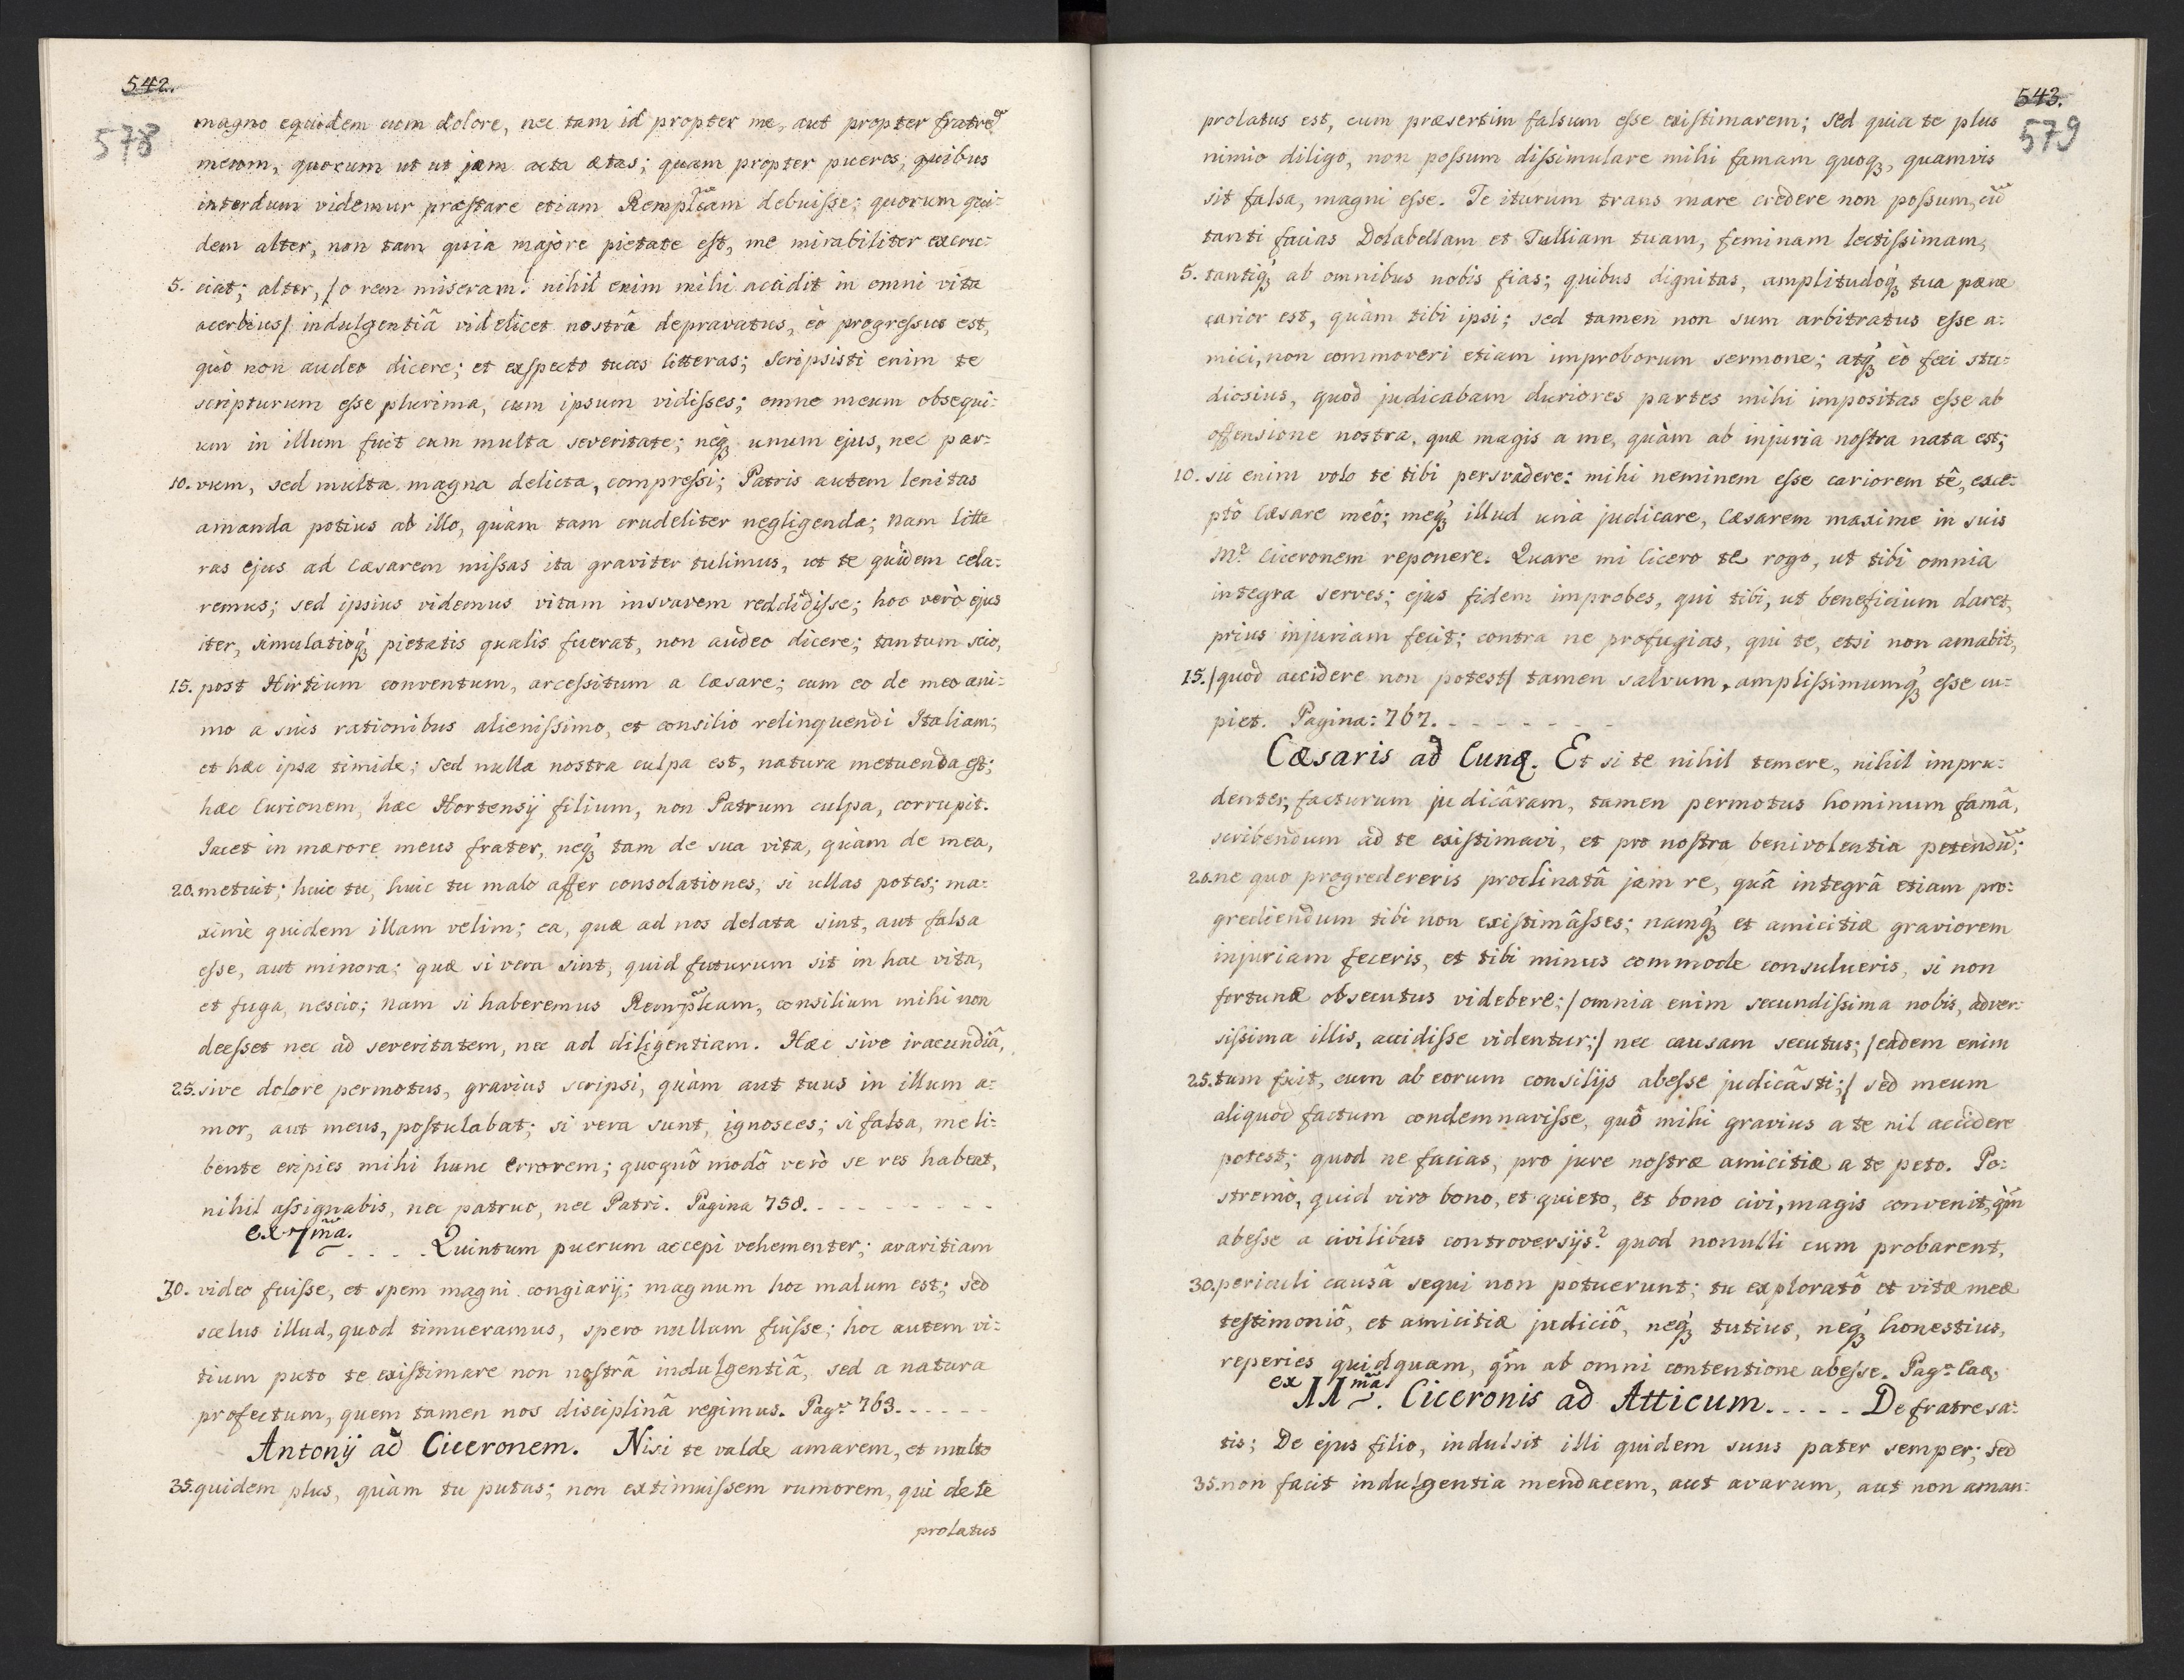 542.
578
magno equidem cum dolore, nec tam id propter me, aut propter fratrẽ
meum, quorum ut ut jam acta ætas; quam propter pueros, quibus
interdum videmur præstare etiam Rempłcam debuisse; quorum qui-
dem alter, non tam quia majore pietate est, me mirabiliter excru-
5. ciat; alter, /o rem miseram! nihil enim mihi accidit in omni vita
acerbius/ indulgentiâ videlicet nostrâ depravatus, eò progressus est,
quò non audeo dicere; et exspecto tuas litteras; scripsisti enim te
scripturum esse plurima, cum ipsum vidisses; omne meum obsequi-
um in illum fuit cum multa severitate; neq́ꝫ unum ejus, nec par-
10. vum, sed multa magna delicta, compressi; Patris autem lenitas
amanda potius ab illo, quàm tam crudeliter negligenda; nam litte
ras ejus ad Cæsarem missas ita graviter tulimus, ut te quidem cela-
remus; sed ipsius videmus vitam insvavem reddidisse; hoc verò ejus
iter, simulatioq́ꝫ pietatis qualis fuerat, non audeo dicere; tantum scio,
15. post Hirtium conventum, arcessitum a Cæsare; cum eo de meo ani-
mo a suis rationibus alienissimo, et consilio relinquendi Italiam;
et hæc ipsa timide; sed nulla nostra culpa est, natura metuenda est;
hæc Curionem, hæc Hortensij filium, non Patrum culpa, corrupit.
Iacet in mærore meus frater, neq́ꝫ tam de sua vita, quàm de mea,
20. metuit; huic tu, huic tu malo affer consolationes, si ullas potes; ma-
ximè quidem illam velim; ea, quæ ad nos delata sint, aut falsa
esse, aut minora; quæ si vera sint, quid futurum sit in hac vita,
et fuga, nescio; nam si haberemus Rempłcam, consilium mihi non
deesset nec ad severitatem, nec ad diligentiam. Hæc sive iracundiâ,
25. sive dolore permotus, gravius scripsi, quàm aut tuus in illum a-
mor, aut meus, postulabat; si vera sunt, ignosces; si falsa, me li-
bente eripies mihi hunc errorem; quoquô modô verò se res habeat,
nihil assignabis, nec patruo, nec Patri. Pagina 758. - - - - - - - - -
ex 7mã. . . . . Quintum puerum accepi vehementer; avaritiam
30. video fuisse, et spem magni congiarij; magnum hoc malum est; sed
scelus illud, quod timueramus, spero nullum fuisse; hoc autem vi-
tium puto te existimare non nostrâ indulgentiâ, sed a natura
profectum, quem tamen nos disciplinâ regimus. Pagᵃ 763. - - - - - -
Antonij ad Ciceronem. Nisi te valde amarem, et multo
35. quidem plus, quàm tu putas; non extimuissem rumorem, qui de te
prolatus
543.
579
prolatus est, cum præsertim falsum esse existimarem; sed quia te plus
nimio diligo, non possum dissimulare mihi famam quoqꝫ, quamvis
sit falsa, magni esse. Te iturum trans mare credere non possum, cũ
tanti facias Dolabellam et Tulliam tuam, feminam lectissimam,
5. tantiq́ꝫ ab omnibus nobis fias; quibus dignitas, amplitudoq́ꝫ tua pæne
carior est, quàm tibi ipsi; sed tamen non sum arbitratus esse a-
mici, non commoveri etiam improborum sermone; atq́ꝫ eò feci stu-
diosius, quod judicabam duriores partes mihi impositas esse ab
offensione nostra, quæ magis a me, quàm ab injuria nostra nata est;
10. sic enim volo te tibi persvadere: mihi neminem esse cariorem tê, exce-
ptô Cæsare meô; meq́ꝫ illud unà judicare, Cæsarem maxime in suis
M? Ciceronem reponere. Quare mi Cicero te rogo, ut tibi omnia
integra serves; ejus fidem improbes, qui tibi, ut beneficium daret,
prius injuriam fecit; contra ne profugias, qui te, etsi non amabit,
15. /quod accidere non potest/ tamen salvum, amplissimumq́ꝫ esse cu-
piet. Pagina: 767. - - - - - - -
Cæsaris ad Eund. Et si te nihil temere, nihil impru-
denter, facturum judicâram, tamen permotus hominum famâ,
scribendum ad te existimavi, et pro nostra benivolentia petendũ;
20. ne quo progredereris proclinatâ jam re, quâ integrâ etiam pro-
grediendum tibi non existimâsses; namq́ꝫ et amicitiæ graviorem
injuriam feceris, et tibi minus commode consulueris, si non
fortunæ obsecutus videbere; /omnia enim secundissima nobis, adver-
sissima illis, accidisse videntur;/ nec causam secutus; /eadem enim
25. tum fuit, cum ab eorum consilijs abesse judicâsti;/ sed meum
aliquod factum condemnavisse, quô mihi gravius a te nil accidere
potest; quod ne facias, pro jure nostræ amicitiæ a te peto. Po-
stremò, quid viro bono, et quieto, et bono civi, magis convenit, q̃m
abesse a civilibus controversijs? quod nonulli cum probarent,
30. periculi causâ sequi non potuerunt; tu exploratô et vitæ meæ
testimoniô, et amicitiæ judiciô, neq́ꝫ tutius, neq́ꝫ honestius,
reperies quidquam, q̃m ab omni contentione abesse. Pagᵃ ead.
ex 11mã. Ciceronis ad Atticum. - - - - De fratre sa-
tis; De ejus filio, indulsit illi quidem suus pater semper; sed
35. non facit indulgentia mendacem, aut avarum, aut non aman-